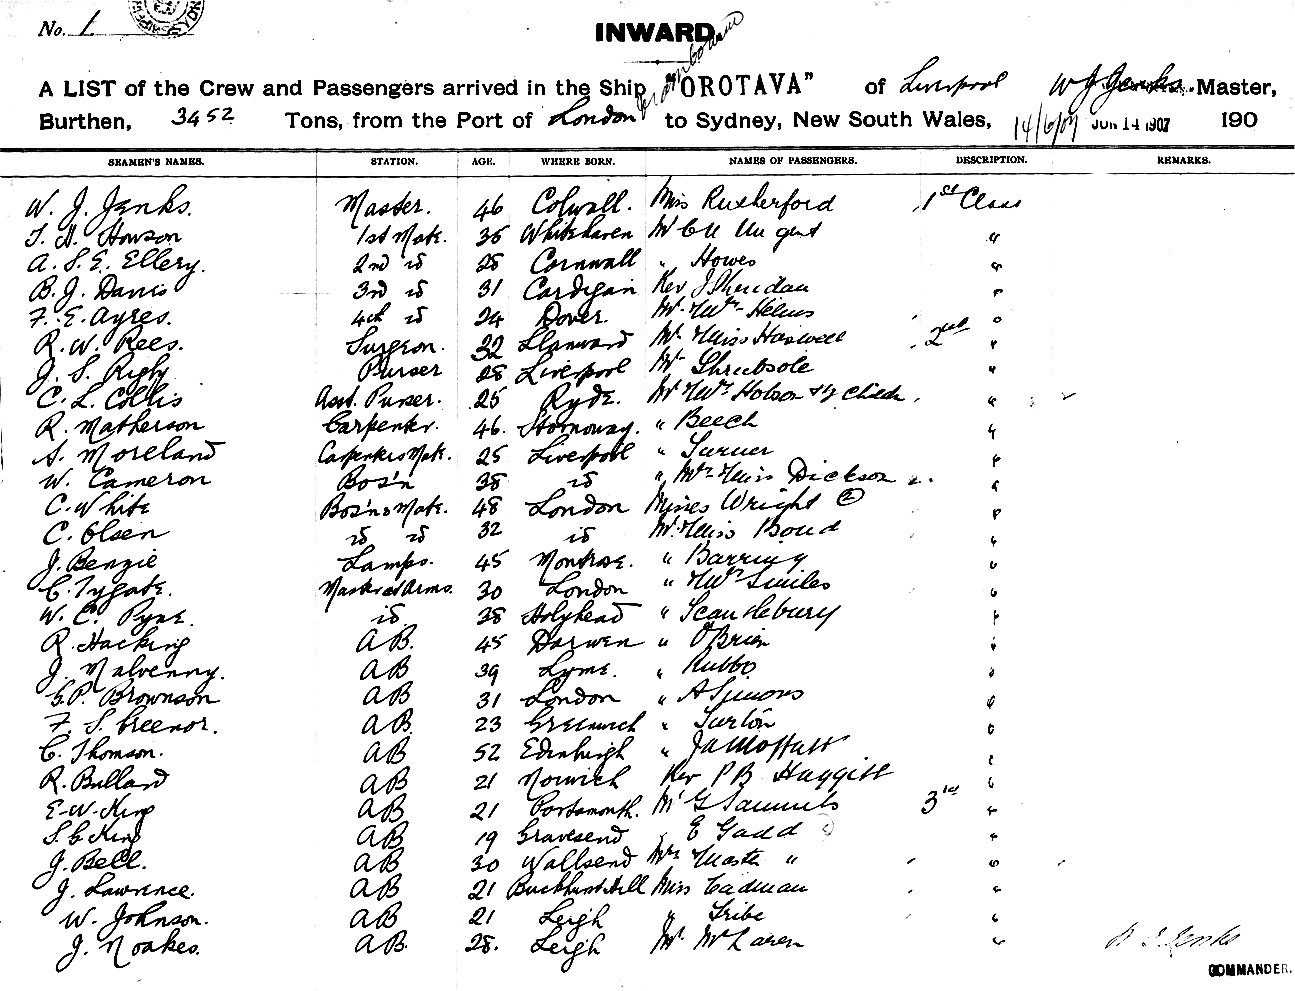 No. 1.
INWARD.
A LIST of the Crew and Passengers arrived in the Ship "OROTAVA" of Liverpool W J Jenks Master,
Burthen, 3452 Tons, from the Port of London to Sydney, New South Wales, 14/6/07 JUN 14 1907 190
SEAMEN'S NAMES. STATION. AGE. WHERE BORN. NAMES OF PASSENGERS. DESCRIPTION. REMARKS.
W. J. Jenks. Master. 46 Colwall. Miss Rutherford 1st Class
T. H. Howson 1st Mate. 36 Whitehaven Mr "
A. S. E. Ellery. 2nd is 28 Cornwall " Howes "
B. J. Davis 3rd is 31 Cardigan Rev J Sheridan "
F. E. Ayres. 4th is 24 Dover. Mr. & Mrs. Helms "
R. W. Rees. Surgeon. 32 Mr. & Miss Haswell 2nd "
J. S. Rigby Purser 28 Liverpool Mr Shrubsole "
C. L. Collis Asst. Purser. 25 Ryde. Mr & Mrs Hobson & Child "
R. Matherson Carpenter. 46. Stornoway. " Beech "
S. Moreland Carpenters Mate. 25 Liverpool " Turner "
W. Cameron Bos'n 38 is " Mrs & Miss Dickson "
C. White Bos'ns Mate. 48 London Misses Wright (2) "
C. Olsen is is 32 is Mr. & Miss Bond "
J. Benzie Lamps. 45 Montrose. " Barring "
C. Tygate. Master at Arms. 30 London " & Mrs Smiles "
W. C. Pyne. is 38 Holyhead " Scandlebury "
R. Hacking AB. 45 Darwen " O'Brien "
J. Malvenny. AB 39 Lyme. " Rubbo "
G. P. Brownson AB 31 London " A Simons "
F. S. Greenor. AB. 23 Greenwich " "
C. Thomson. AB 52 Edinburgh " Jas Moffatt "
R. Bulland AB 21 Norwich Rev P B Haggitt "
E. W. King AB 21 Portsmouth. Mr G Samuels 3rd "
S. G. King AB 19 Gravesend " E Gadd "
J. Bell. AB 30 Wallsend Mrs & Master " "
J. Lawrence. AB 21 Buckhurst Hill Miss Cadman "
W. Johnson. AB 21 Leigh " Tribe "
J. Noakes. AB. 28. Leigh Mr. McLaren "
W J Jenks
COMMANDER.